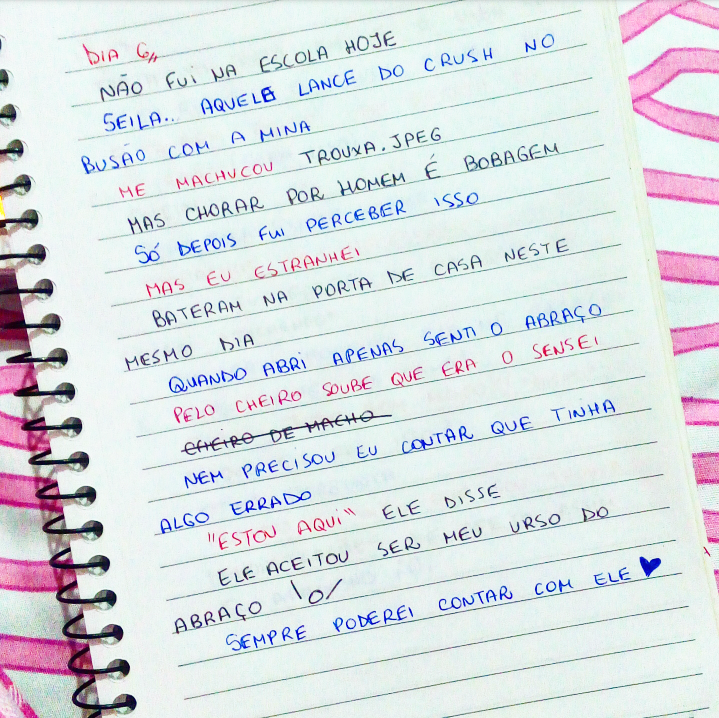 DIA 6,,
NÃO FUI NA ESCOLA HOJE
SEILA.. AQUELE LANCE DO CRUSH NO
BUSÃO COM A MINA
ME MACHUCOU TROUXA.JPEG
MAS CHORAR POR HOMEM É BOBAGEM
SÓ DEPOIS FUI PERCEBER ISSO
MAS EU ESTRANHEI
BATERAM NA PORTA DE CASA NESTE
MESMO DIA
QUANDO ABRI APENAS SENTI O ABRAÇO
PELO CHEIRO SOUBE QUE ERA O SENSEI
CHEIRO DE MACHO
NEM PRECISOU EU CONTAR QUE TINHA
ALGO ERRADO
"ESTOU AQUI" ELE DISSE
ELE ACEITOU SER MEU URSO DO
ABRAÇO \o/
SEMPRE PODEREI CONTAR COM ELE ♥